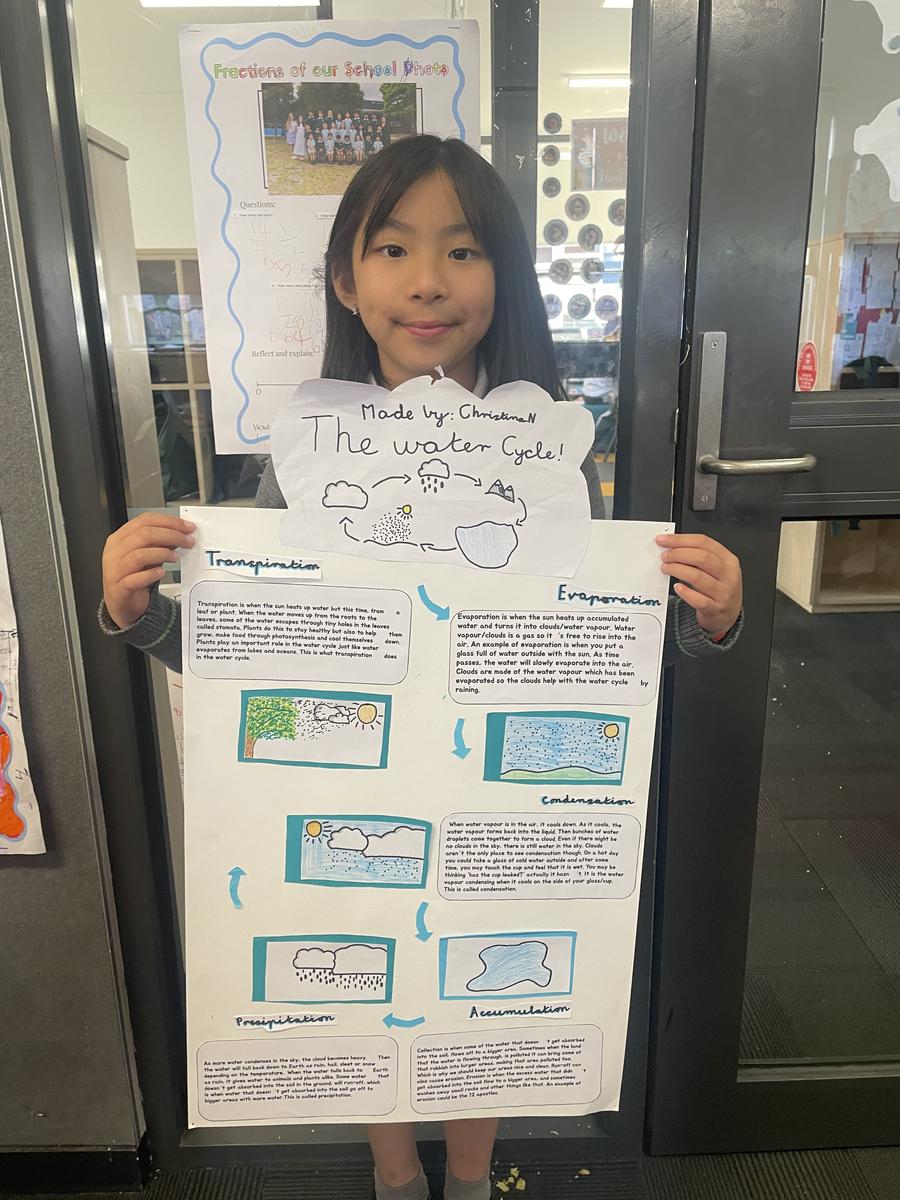 Fractions of our School Photo
Questions:
Reflect and explain:
0
Made by: Christina.N
The water Cycle!
Transpiration
Transpiration is when the sun heats up water but this time, from a
leaf or plant. When the water moves up from the roots to the
leaves, some of the water escapes through tiny holes in the leaves
called stomata. Plants do this to stay healthy but also to help them
grow, make food through photosynthesis and cool themselves down.
Plants play an important role in the water cycle just like water
evaporates from lakes and oceans. This is what transpiration does
in the water cycle.
Evaporation
Evaporation is when the sun heats up accumulated
water and turns it into clouds/water vapour. Water
vapour/clouds is a gas so it 's free to rise into the
air. An example of evaporation is when you put a
glass full of water outside with the sun. As time
passes, the water will slowly evaporate into the air.
Clouds are made of the water vapour which has been
evaporated so the clouds help with the water cycle by
raining.
Condensation
When water vapour is in the air, it cools down. As it cools, the
water vapour forms back into the liquid. Then bunches of water
droplets come together to form a cloud. Even if there might be
no clouds in the sky, there is still water in the sky. Clouds
aren't the only place to see condensation though. On a hot day
you could take a glass of cold water outside and after some
time, you may touch the cup and feel that it is wet. You may be
thinking 'has the cup leaked?' actually it hasn 't. It is the water
vapour condensing when it cools on the side of your glass/cup.
This is called condensation.
Precipitation
As more water condenses in the sky, the cloud becomes heavy. Then
the water will fall back down to Earth as rain, hail, sleet or snow
depending on the temperature. When the water falls back to Earth
as rain, it gives water to animals and plants alike. Some water that
doesn 't get absorbed into the soil in the ground, will run-off, which
is when water that doesn 't get absorbed into the soil go off to
bigger areas with more water.This is called precipitation.
Accumulation
Collection is when some of the water that doesn 't get absorbed
into the soil, flows off to a bigger area. Sometimes when the land
that the water is flowing through, is polluted it can bring some of
that rubbish into larger areas, making that area polluted too.
Which is why we should keep our areas nice and clean. Run-off can
also cause erosion. Erosion is when the excess water that didn 't
get absorbed into the soil flow to a bigger area, and sometimes
washes away small rocks and other things like that. An example of
erosion could be the 12 apostles.